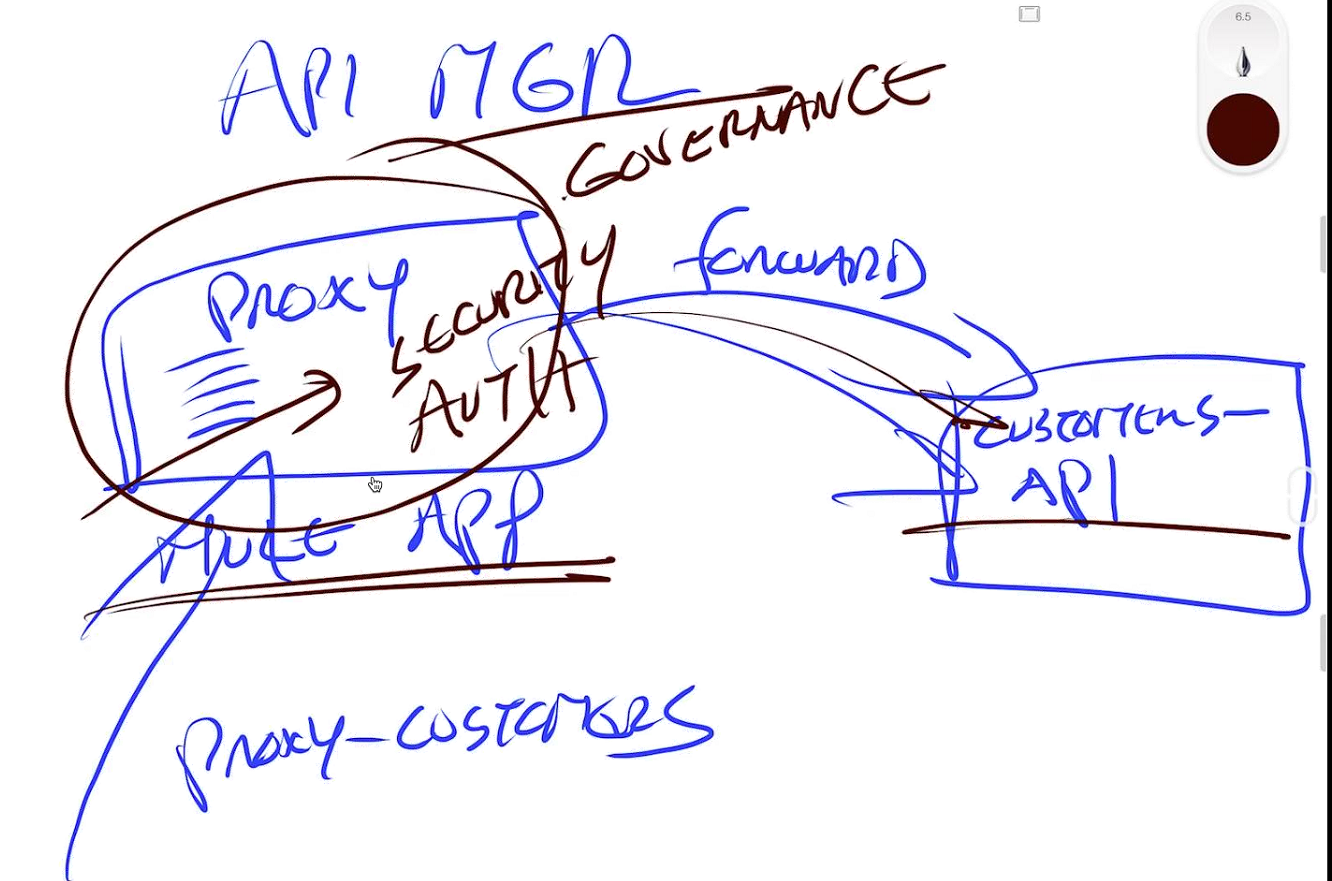 6.5
API MGR
GOVERNANCE
forWARD
PROXY
SECURITY
AUTH
CUSTOMERS-
API
MULE APP
PROXY-CUSTOMERS